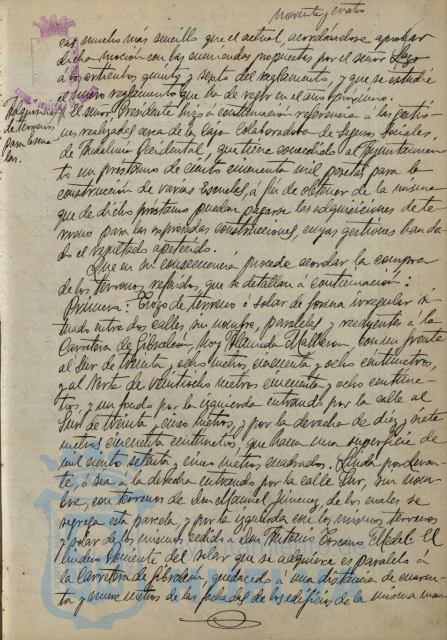 noventa y cuatro
cas mucho más sencillo que el actual, acordándose aprobar
dicha moción con las enmiendas propuestas por el señor Lago
a los artículos quinto y septo del reglamento, y que se estudie
el nuevo reglamento que ha de regir en el año próximo.
Adquisición
de terrenos
para escue-
las.
El señor Presidente hizo a continuación referencia a las gestio-
nes realizadas cerca de la Caja Colaboradora de Seguros Sociales
de Andalucía Occidental, que tiene concedido al Ayuntamien-
to un préstamo de ciento cincuenta mil pesetas para la
construcción de varias Escuelas, a fin de obtener de la misma
que de dicho préstamo puedan pagarse las adquisiciones de te-
rreno para las expresadas construcciones, cuyas gestiones han da-
do el resultado apetecido.
Que en su consecuencia procede acordar la compra
de los terrenos referidos, que se detallan a continuación:
Primera: Trozo de terreno o solar de forma irregular si-
tuado entre dos calles, sin nombre, paralelas y recayentes a la
Carretera de Gibraleón, hoy Alameda, con un frente
al Sur de treinta y ocho metros cincuenta y ocho centímetros,
y al Norte de veintiocho metros cincuenta y ocho centíme-
tros, y un fondo por la izquierda entrando por la calle al
Sur de treinta y cinco metros, y por la derecha de diez y siete
metros cincuenta centímetros, que hacen una superficie de
mil ciento setenta y cinco metros cuadrados. Linda por
o sea a la derecha entrando por la calle Sur, sin nom-
bre, con terrenos de Don Manuel Jimenez, de los cuales se
segrega esta parcela, y por la izquierda con los mismos terrenos
y solar de los mismos cedido a Don Antonio. El
lindero Poniente del solar que se adquiere es paralelo a
la Carretera de Gibraleón, quedando a una distancia de cuaren-
ta y nueve metros de las fachadas de los edificios de la misma